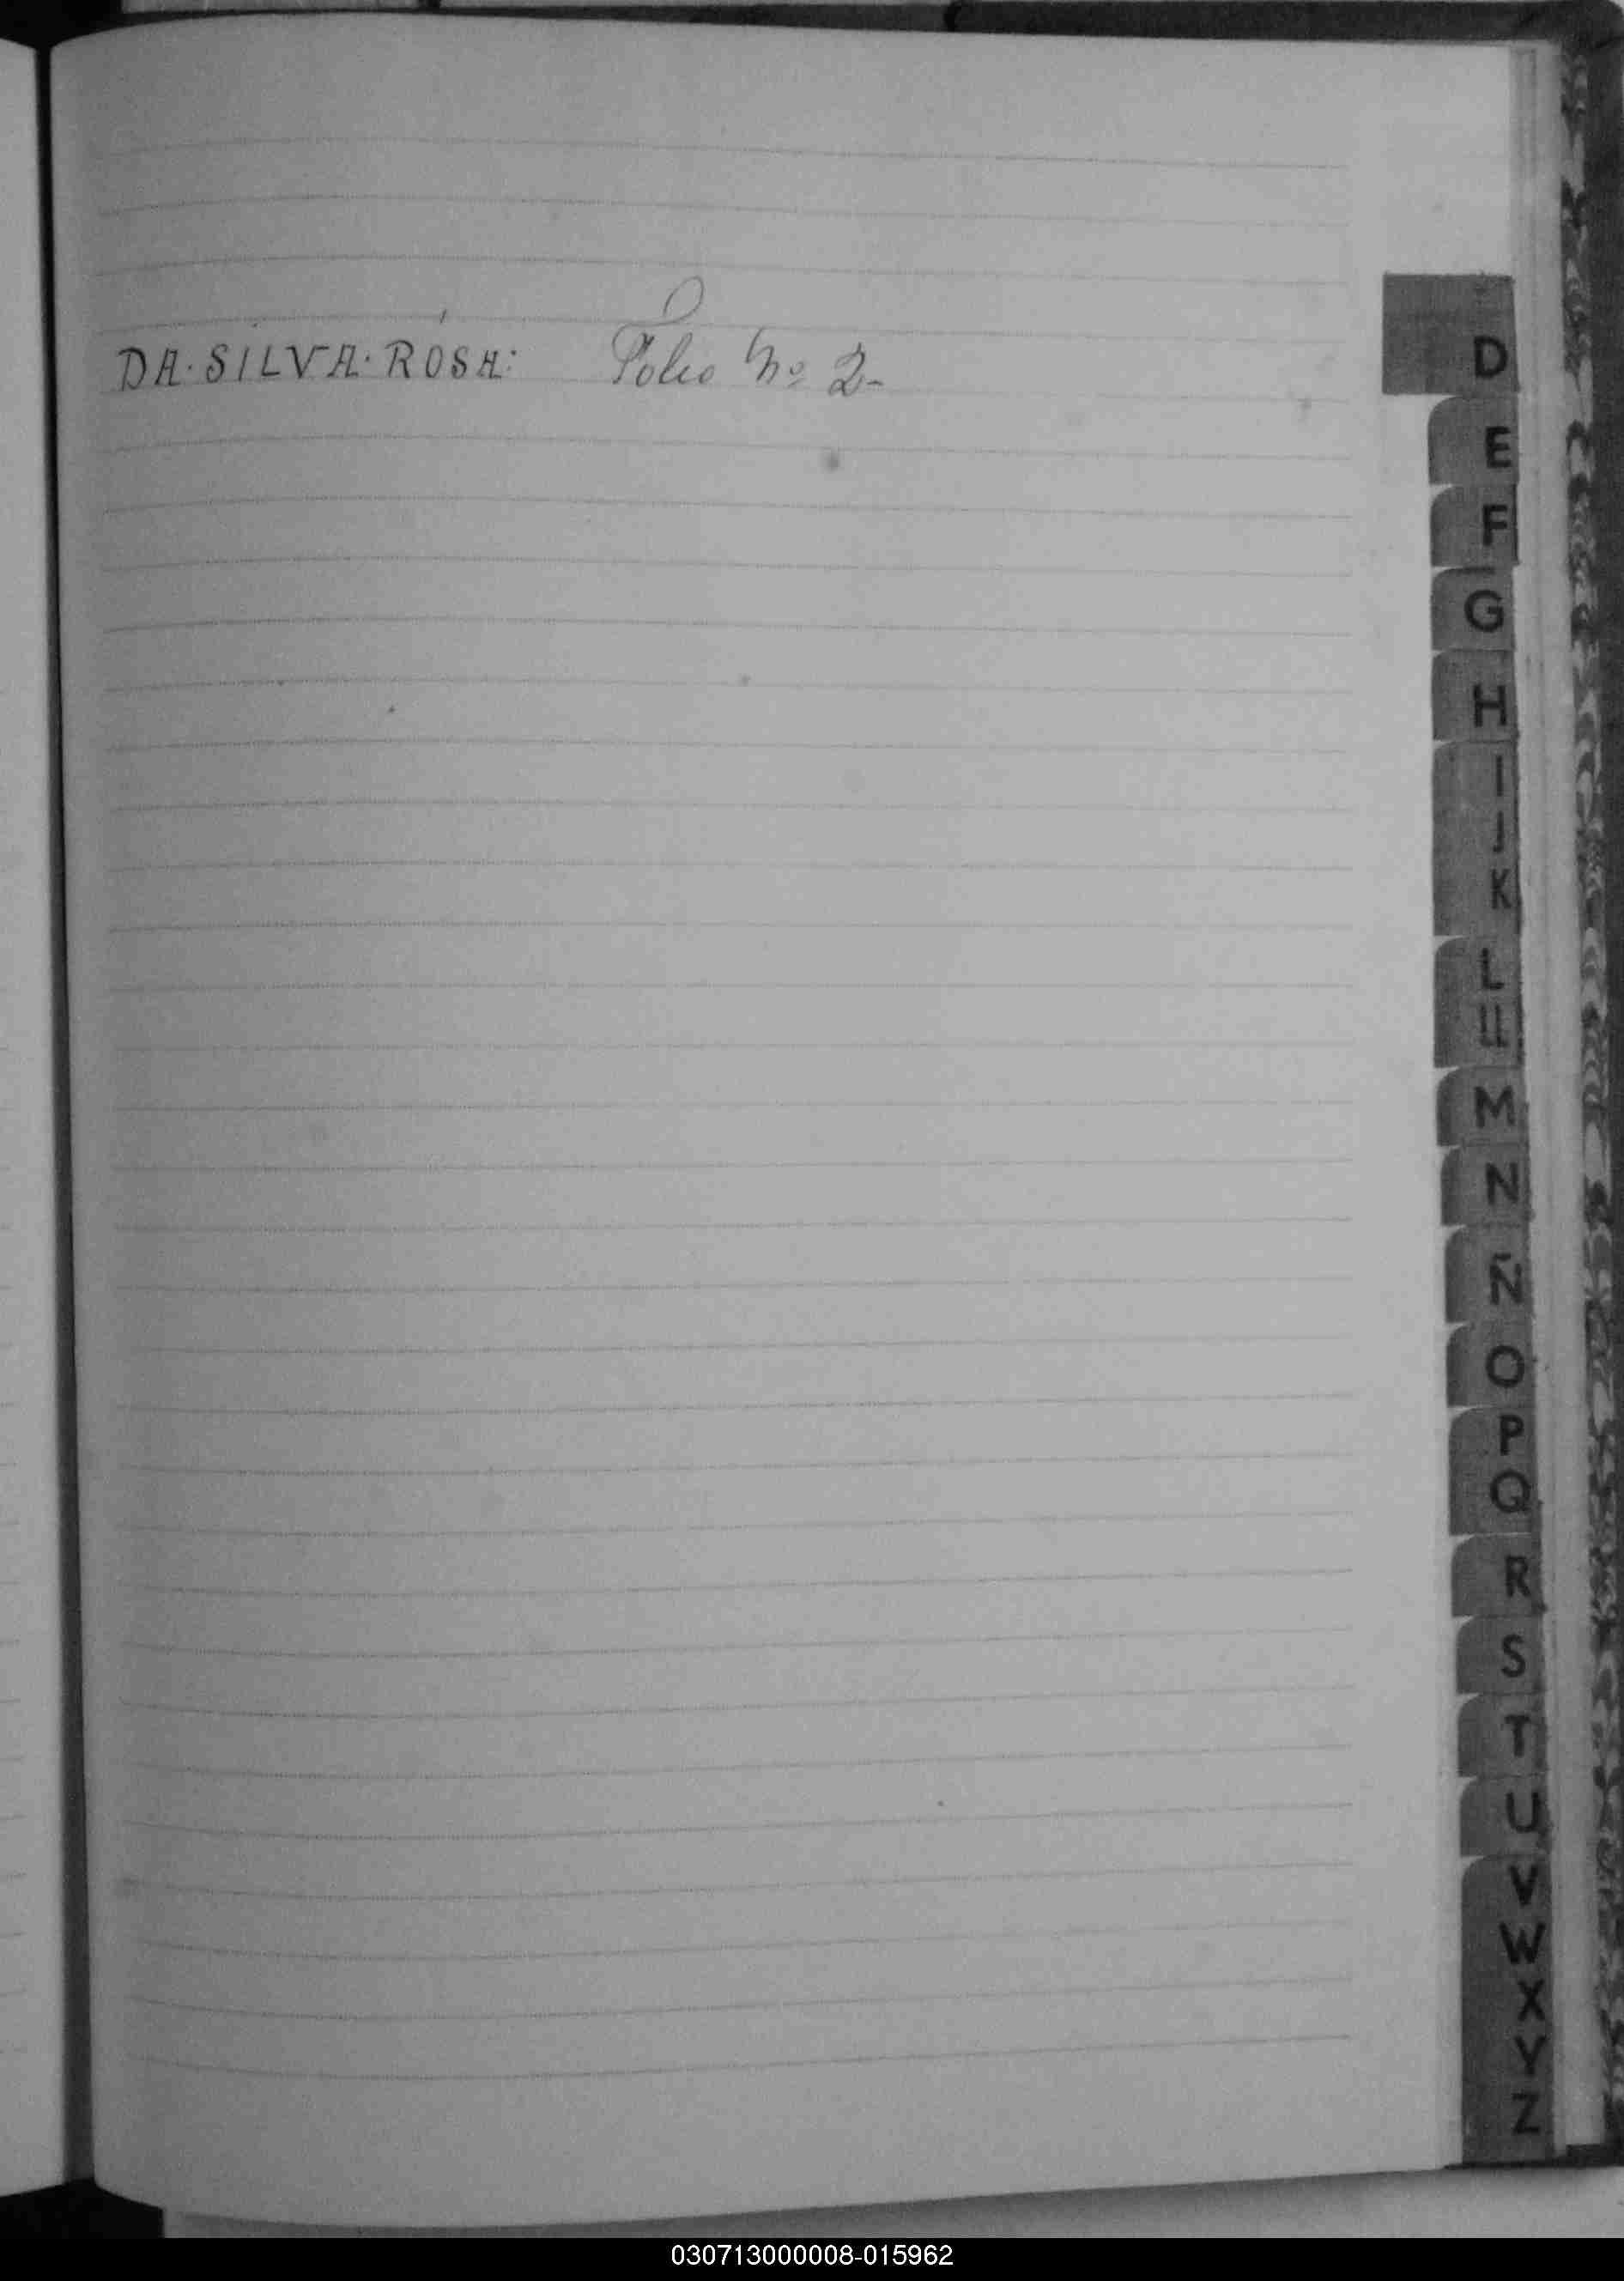 DA·SILVA·ROSA: Folio No 2-
D
E
F
G
H
I
J
K
L
LL
M
N
Ñ
O
P
Q
R
S
T
U
V
W
X
Y
Z
030713000008-015962